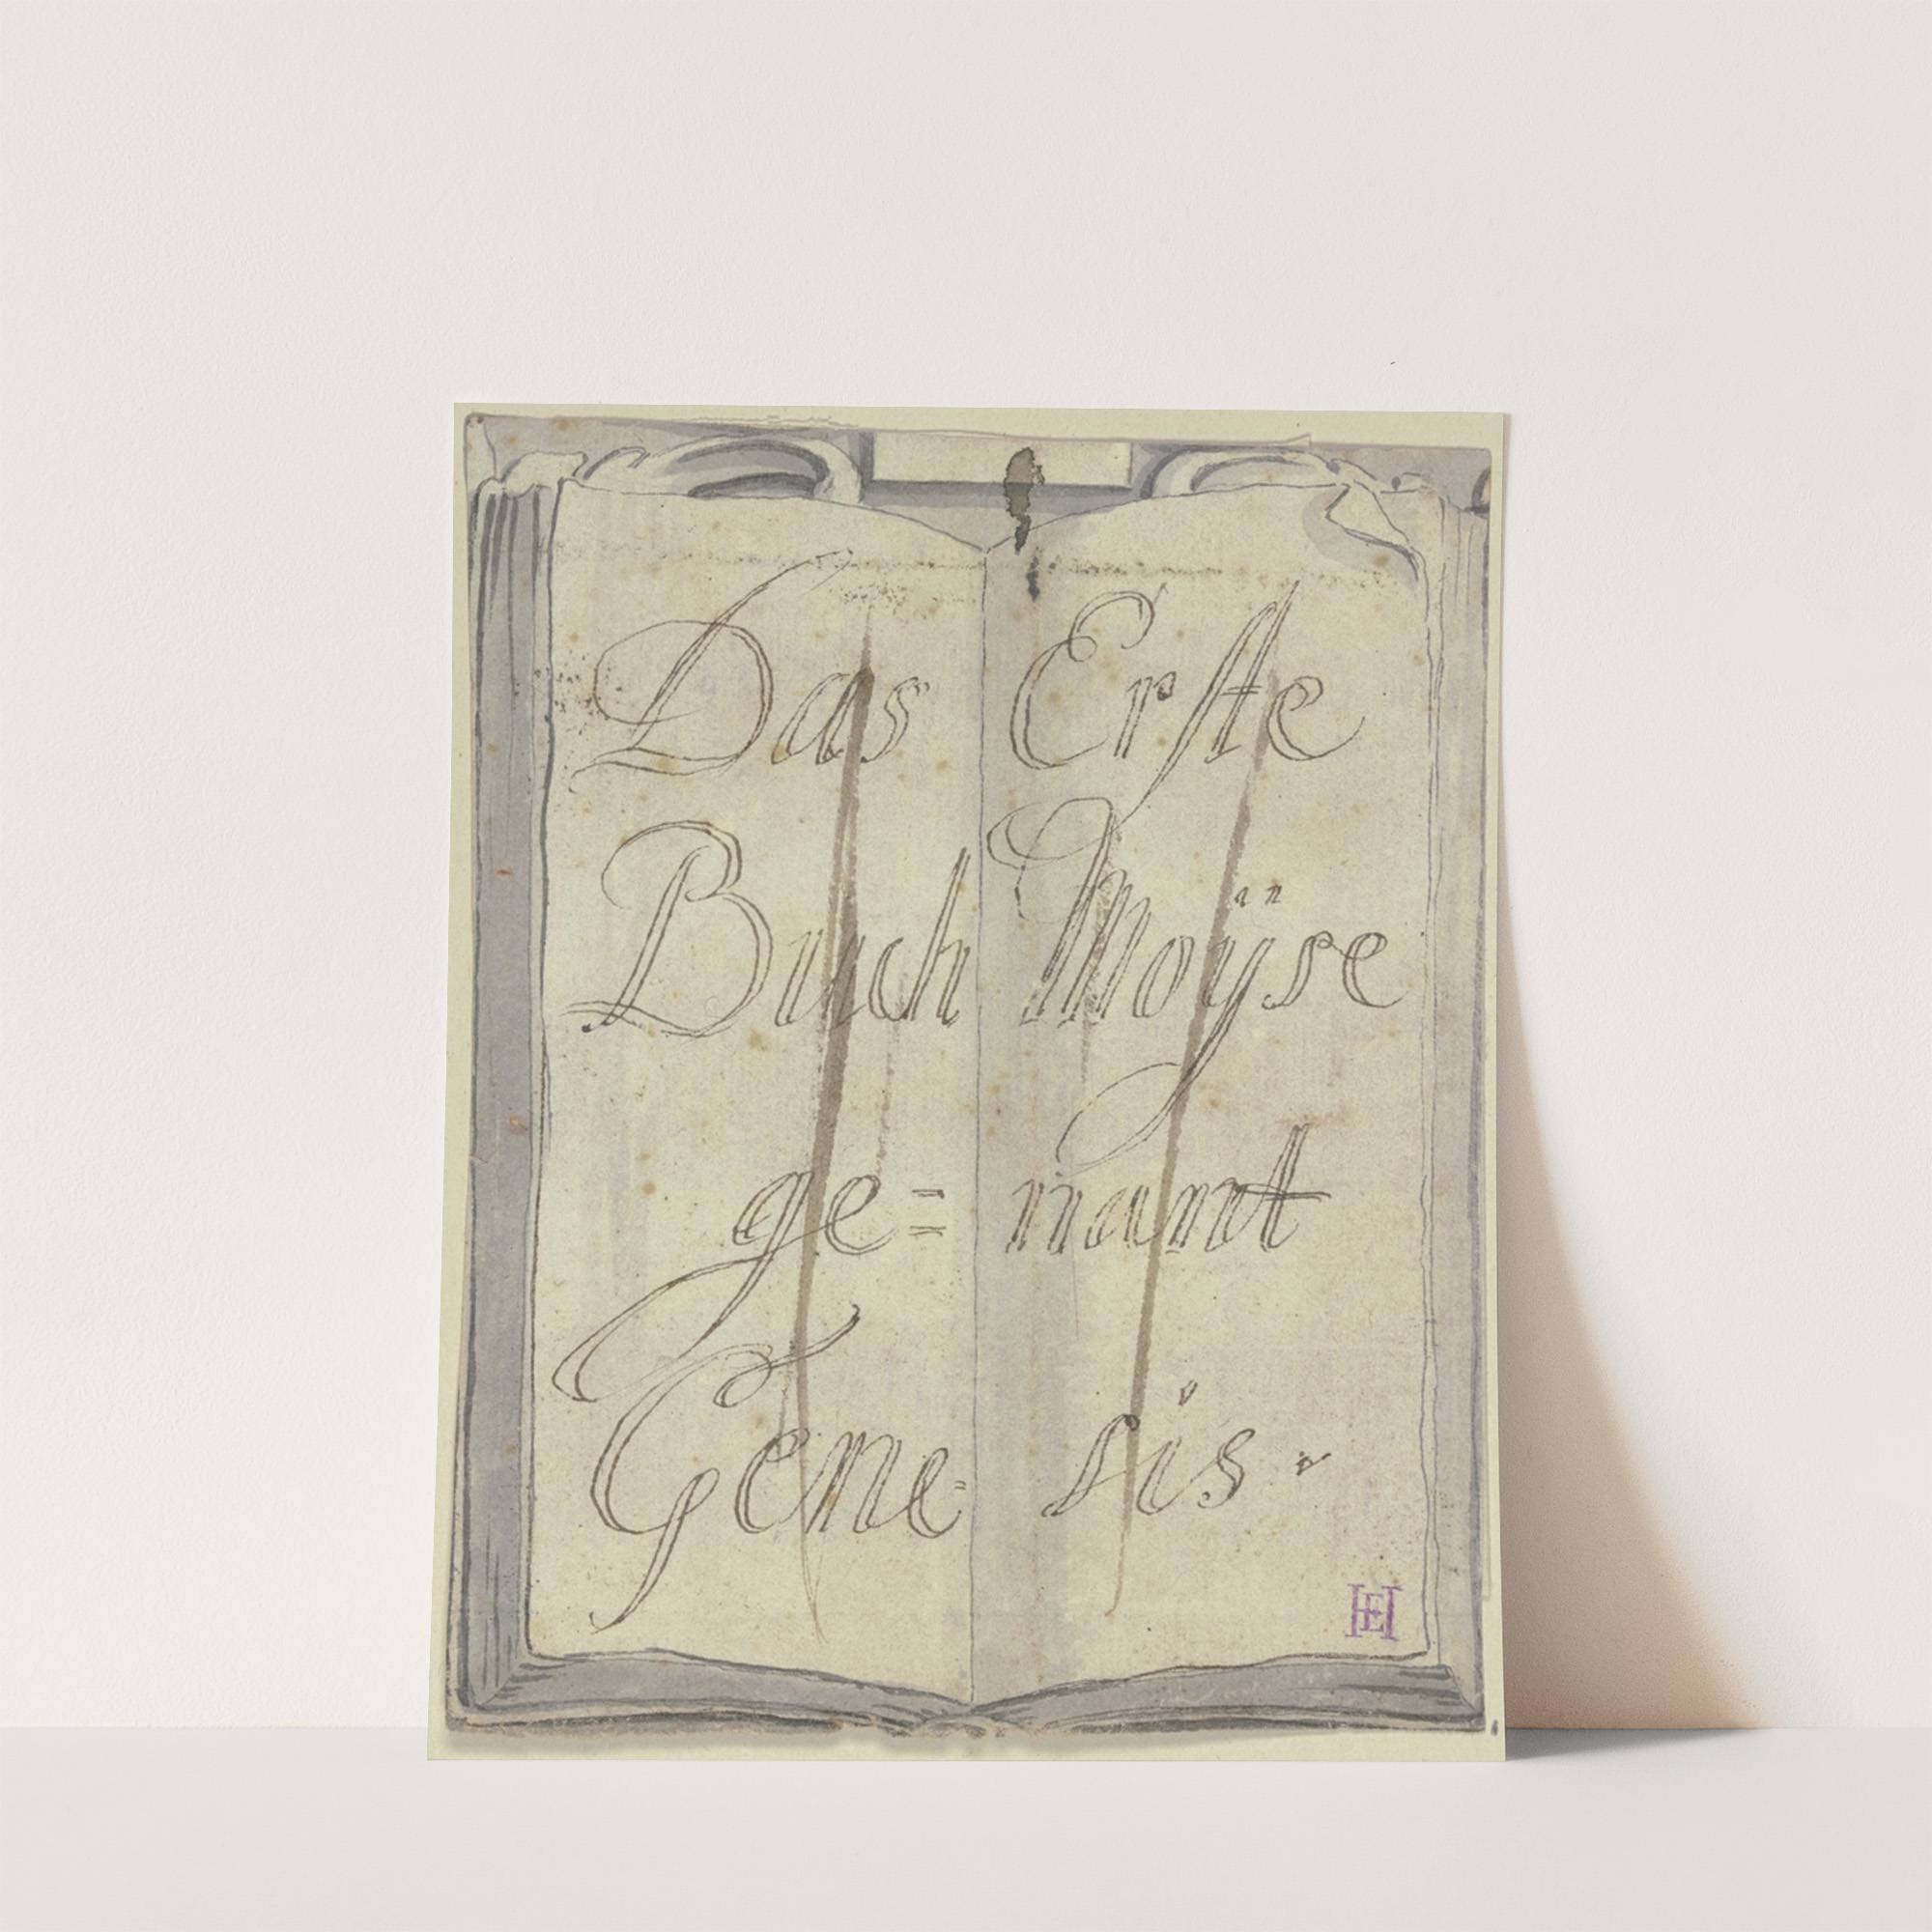 Das Erste
Buch Moÿse
ge= nant
Gene= sis.